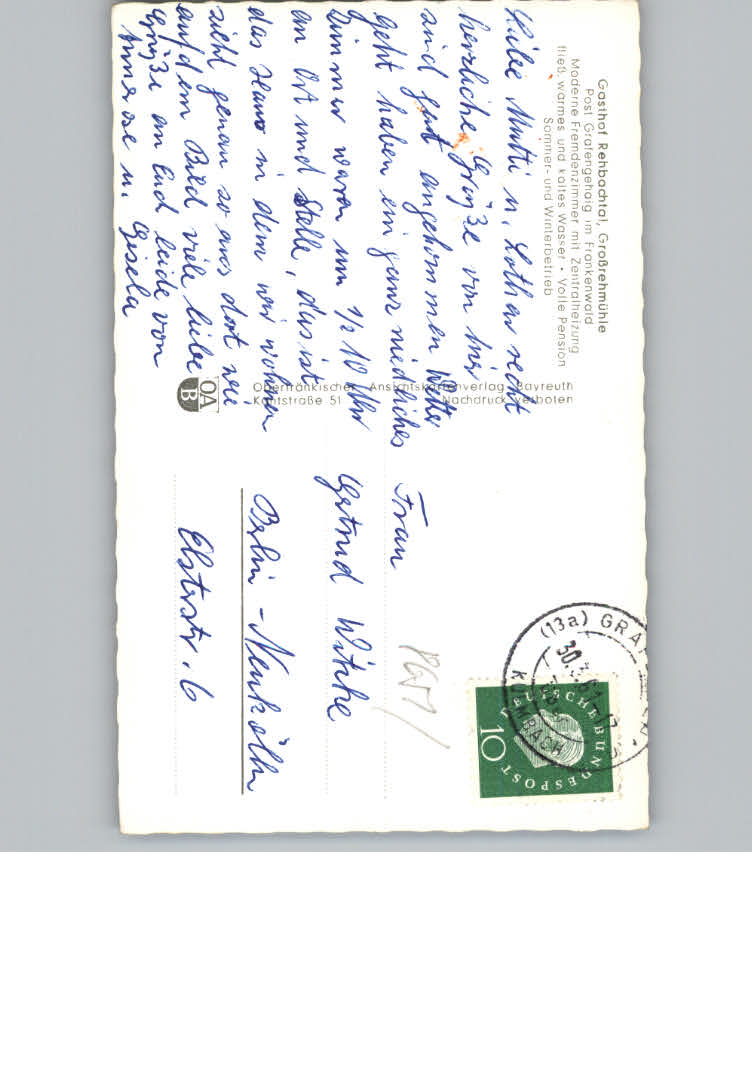 Gasthof Rehbachtal, Großrehmühle
Post Grafengehaig im Frankenwald
Moderne Fremdenzimmer mit Zentralheizung
fließ. warmes und kaltes Wasser • Volle Pension
Sommer- und Winterbetrieb
Liebe Mutti u. Lothar recht
herzliche Grüße von hier
sind gut angekommen Wetter
geht haben ein ganz niedliches
Zimmer waren um 1/2 10 Uhr
an Ort und Stelle, das ist
das Haus in dem wir wohnen
sieht genau so aus dort wie
auf dem Bild viele liebe
Grüße an Euch beide von
u. Gisela
Oberfränkischer Ansichtskartenverlag Bayreuth
Kantstraße 51 Nachdruck verboten
OA
B
Frau
Gertrud Witzke
Berlin - Neukölln
Elsterstr. 6
(13a)
KULMBACH
DEUTSCHE BUNDESPOST
10